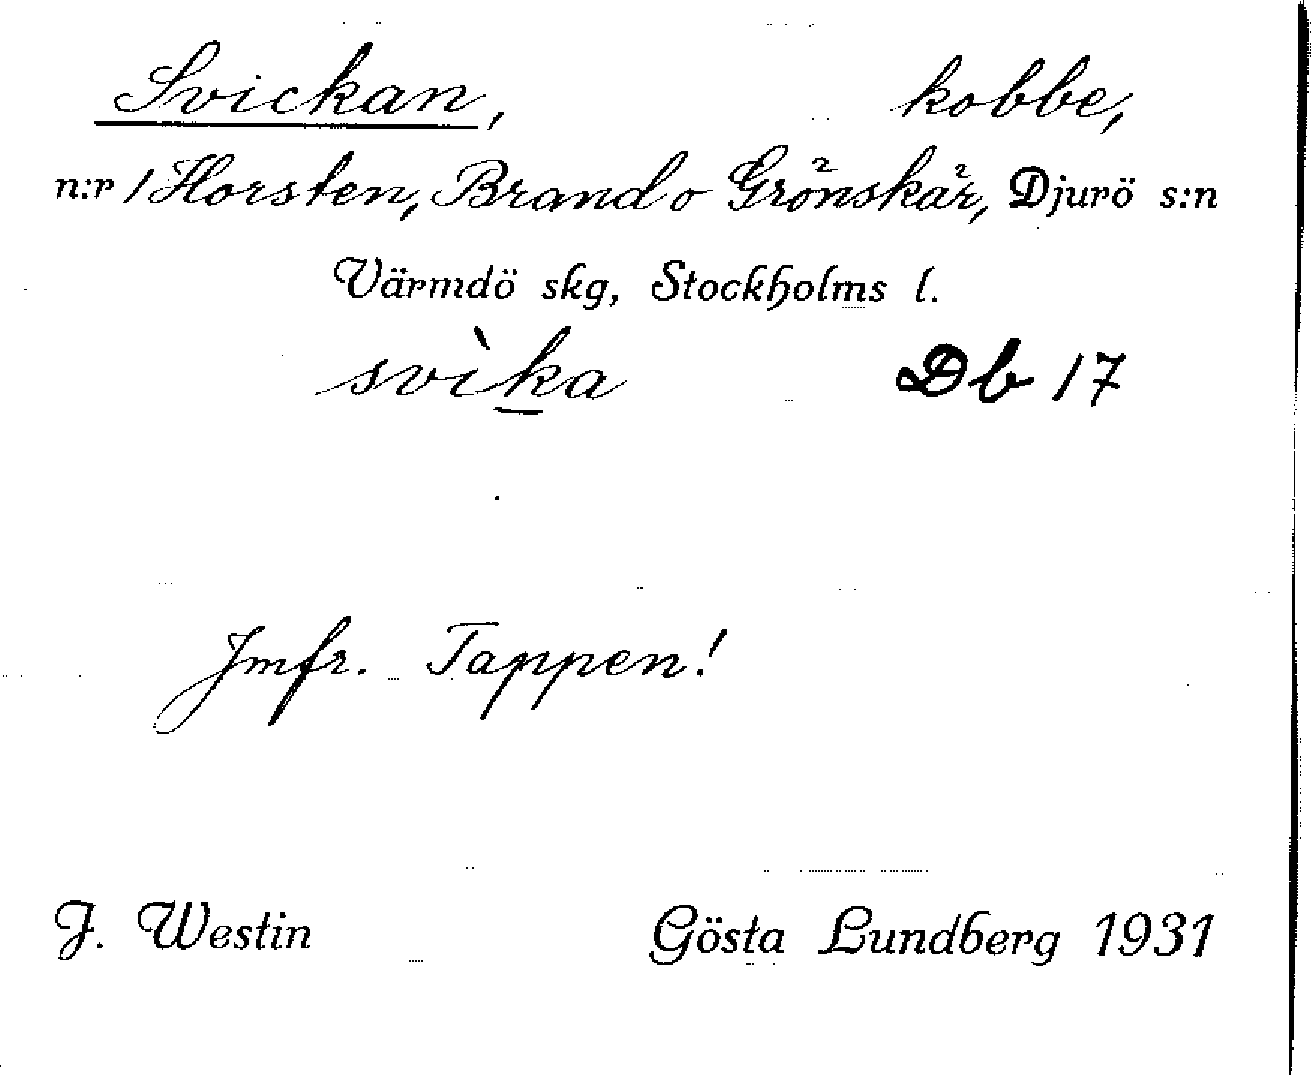 Svickan, kobbe,
n:r 1 Horsten, Brand o Grönskär, Djurö s:n
Värmdö skg, Stockholms l.
svìka Db 17
Jmfr. Tappen!
J. Westin Gösta Lundberg 1931